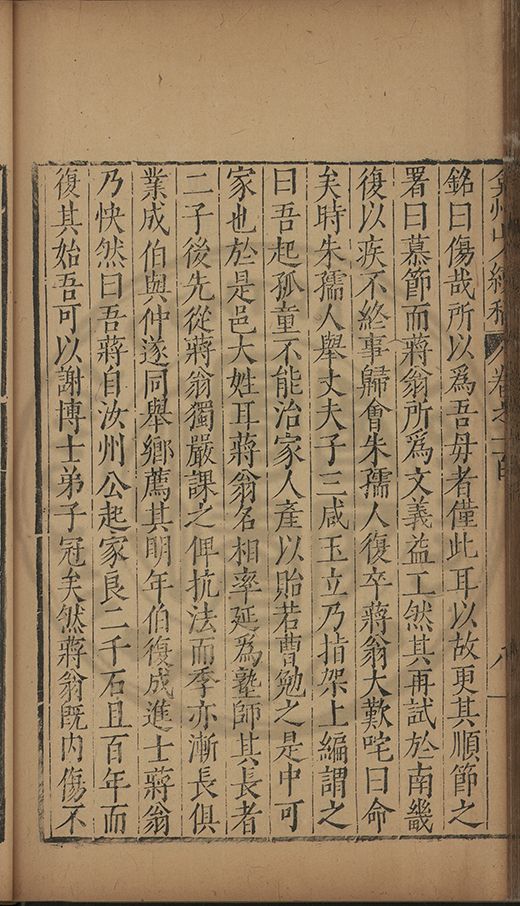 弇州山人續稿 卷之一百 八
銘曰傷哉所以爲吾毋者僅此耳以故更其順節之
署曰慕節而蔣翁所爲文義益工然其再試於南畿
復以疾不終事歸會朱孺人復卒蔣翁大歎咤曰命
矣時朱孺人舉丈夫子三咸玉立乃指架上編謂之
曰吾起孤童不能治家人產以貽若曹勉之是中可
家也於是邑大姓耳蔣翁名相率延爲塾師其長者
二子後先從蔣翁獨嚴課之俾抗法而季亦漸長俱
業成伯與仲遂同舉鄉薦其明年伯復成進士蔣翁
乃怏然曰吾蔣自汝州公起家良二千石且百年而
復其始吾可以謝博士弟子冠矣然蔣翁既内傷不